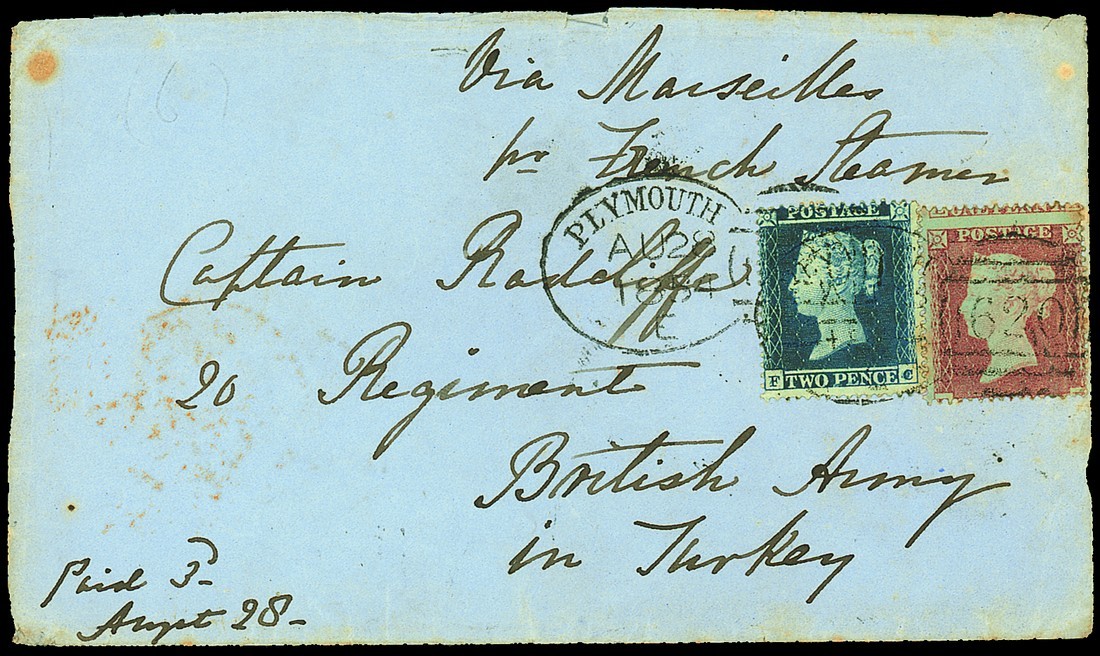 Via Marseilles
pr French Steamer
PLYMOUTH
AU 28
1854
E
POSTAGE
POSTAGE
620
F TWO PENCE C
Captain Radcliffe
20 Regiment
British Army
in Turkey
Paid 3d
Augst 28